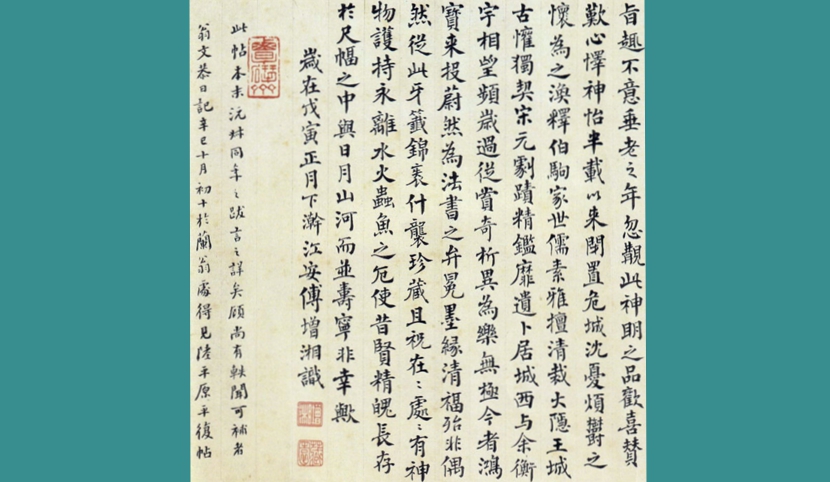 旨趣不意垂老之年忽覩此神明之品歡喜贊
歎心懌神怡半載以來閉置危城沈憂煩鬱之
懷為之渙釋伯駒家世儒素雅擅清裁大隱王城
古懽獨契宋元劇蹟精鑑靡遺卜居城西與余衡
宇相望頻歲過從賞奇析異為樂無極今者鴻
寶來投蔚然為法書之弁冕墨緣清福殆非偶
然從此牙籤錦裹什襲珍藏且祝在〻處〻有神
物護持永離水火蟲魚之厄使昔賢精魄長存
於尺幅之中與日月山河而並壽寧非幸歟
歲在戊寅正月下澣江安傅增湘識
此帖本末沅叔同年之跋言之詳矣顧尚有軼聞可補者
翁文恭日記辛巳十月初十於蘭翁處得見陸平原平復帖